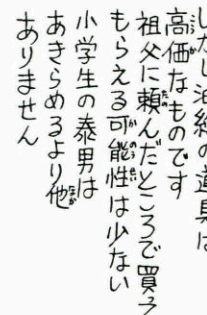 しかし油絵の道具は
高価なものです
祖父に頼んだところで買って
もらえる可能性は少ない
小学生の泰男は
あきらめるより他
ありません